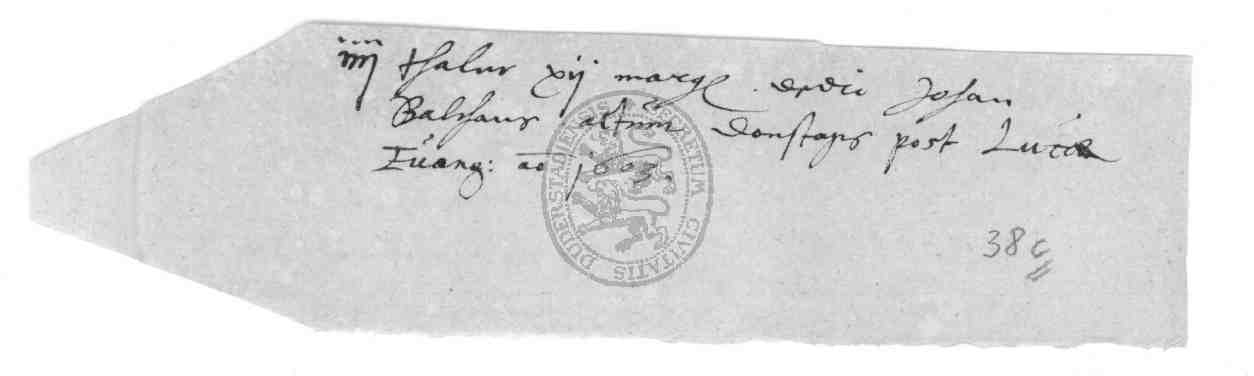 iiij thaler xij marge dedit Johan
Balthaus altum donstags post Luce
Euang: ao 1603.
SECRETUM CIVITATIS DUDERSTADIENSIS
38 c